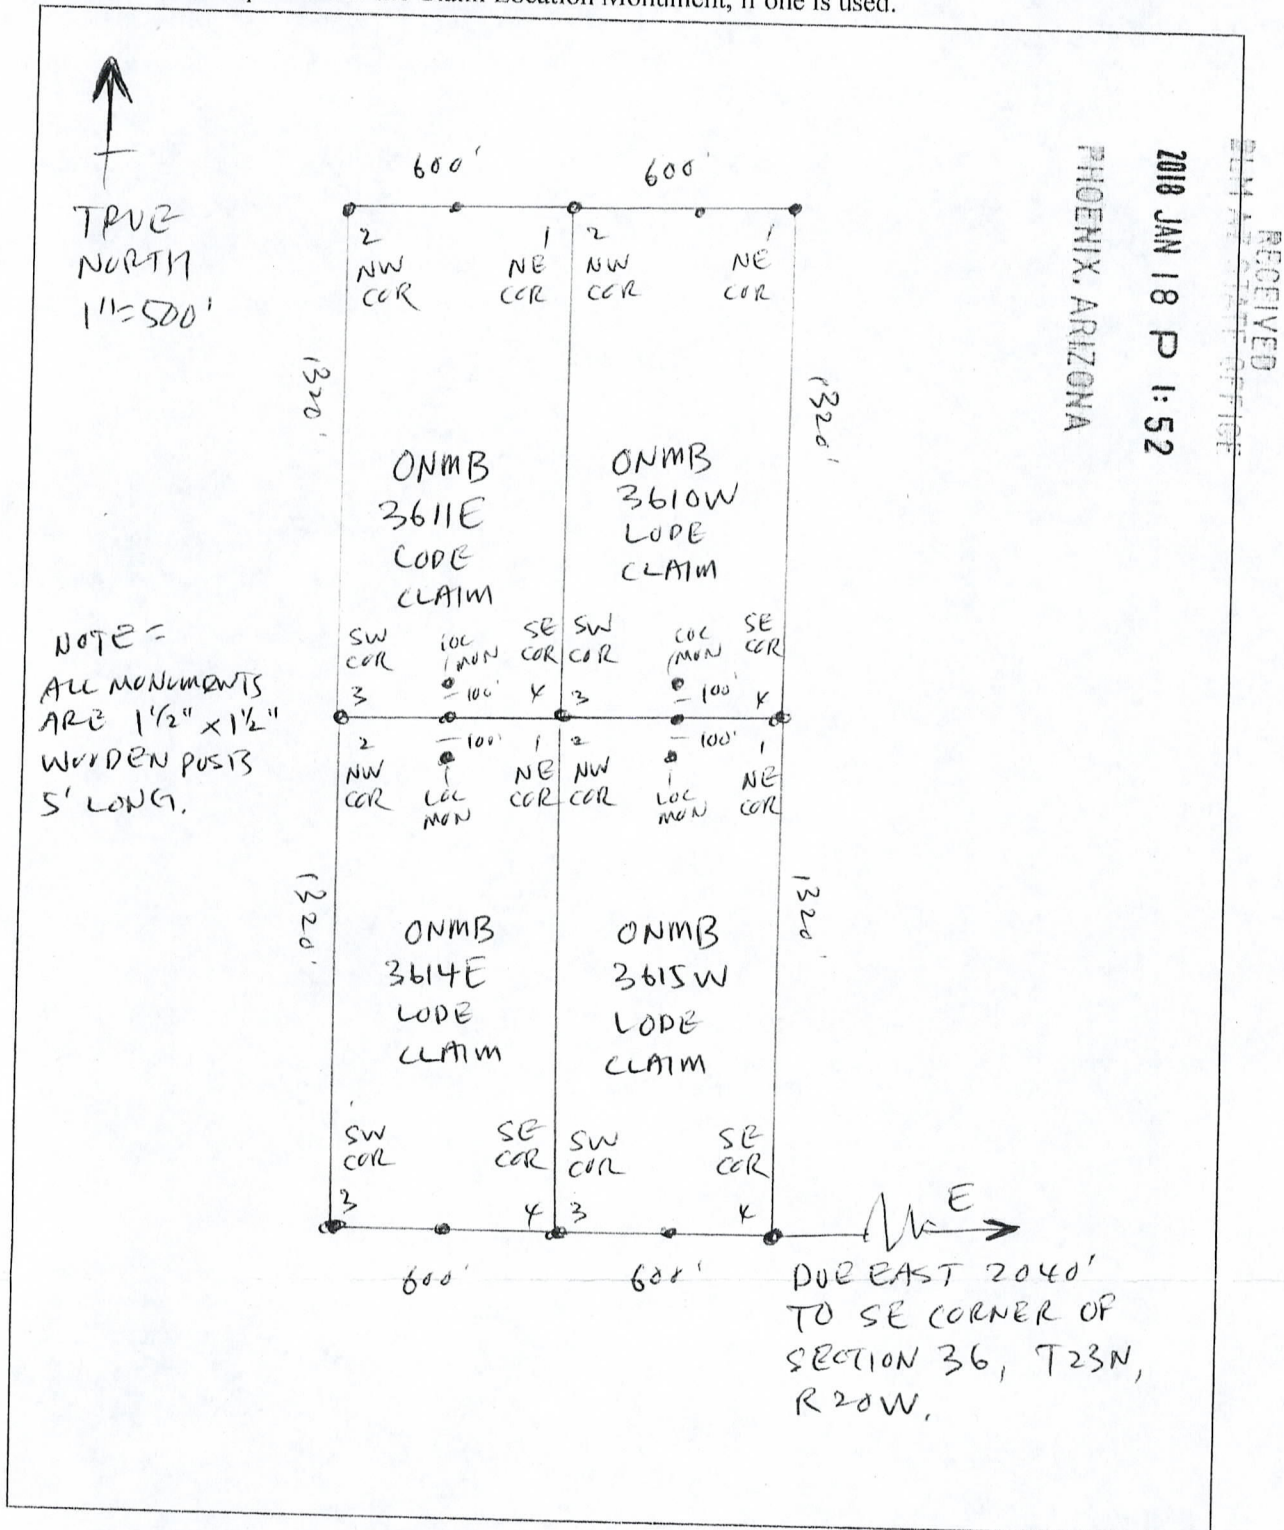 Claim Location Monument, if one is used.
RECEIVED
BLM AZ STATE OFFICE
2018 JAN 18 P 1:52
PHOENIX, ARIZONA
TRUE
NORTH
1"=500'
600'
600'
2
NW
COR
1
NE
COR
2
NW
COR
1
NE
COR
1320'
1320'
ONMB
3611E
LODE
CLAIM
ONMB
3610W
LODE
CLAIM
SW
COR
3
LOC
MON
100'
SE
COR
4
SW
COR
3
LOC
MON
100'
SE
COR
4
NOTE=
ALL MONUMENTS
ARE 1 1/2" x 1 1/2"
WOODEN POSTS
5' LONG.
2
NW
COR
100'
LOC
MON
1
NE
COR
2
NW
COR
100'
LOC
MON
1
NE
COR
1320'
1320'
ONMB
3614E
LODE
CLAIM
ONMB
3615W
LODE
CLAIM
SW
COR
3
SE
COR
4
SW
COR
3
SE
COR
4
E
600'
600'
DUE EAST 2040'
TO SE CORNER OF
SECTION 36, T23N,
R20W.